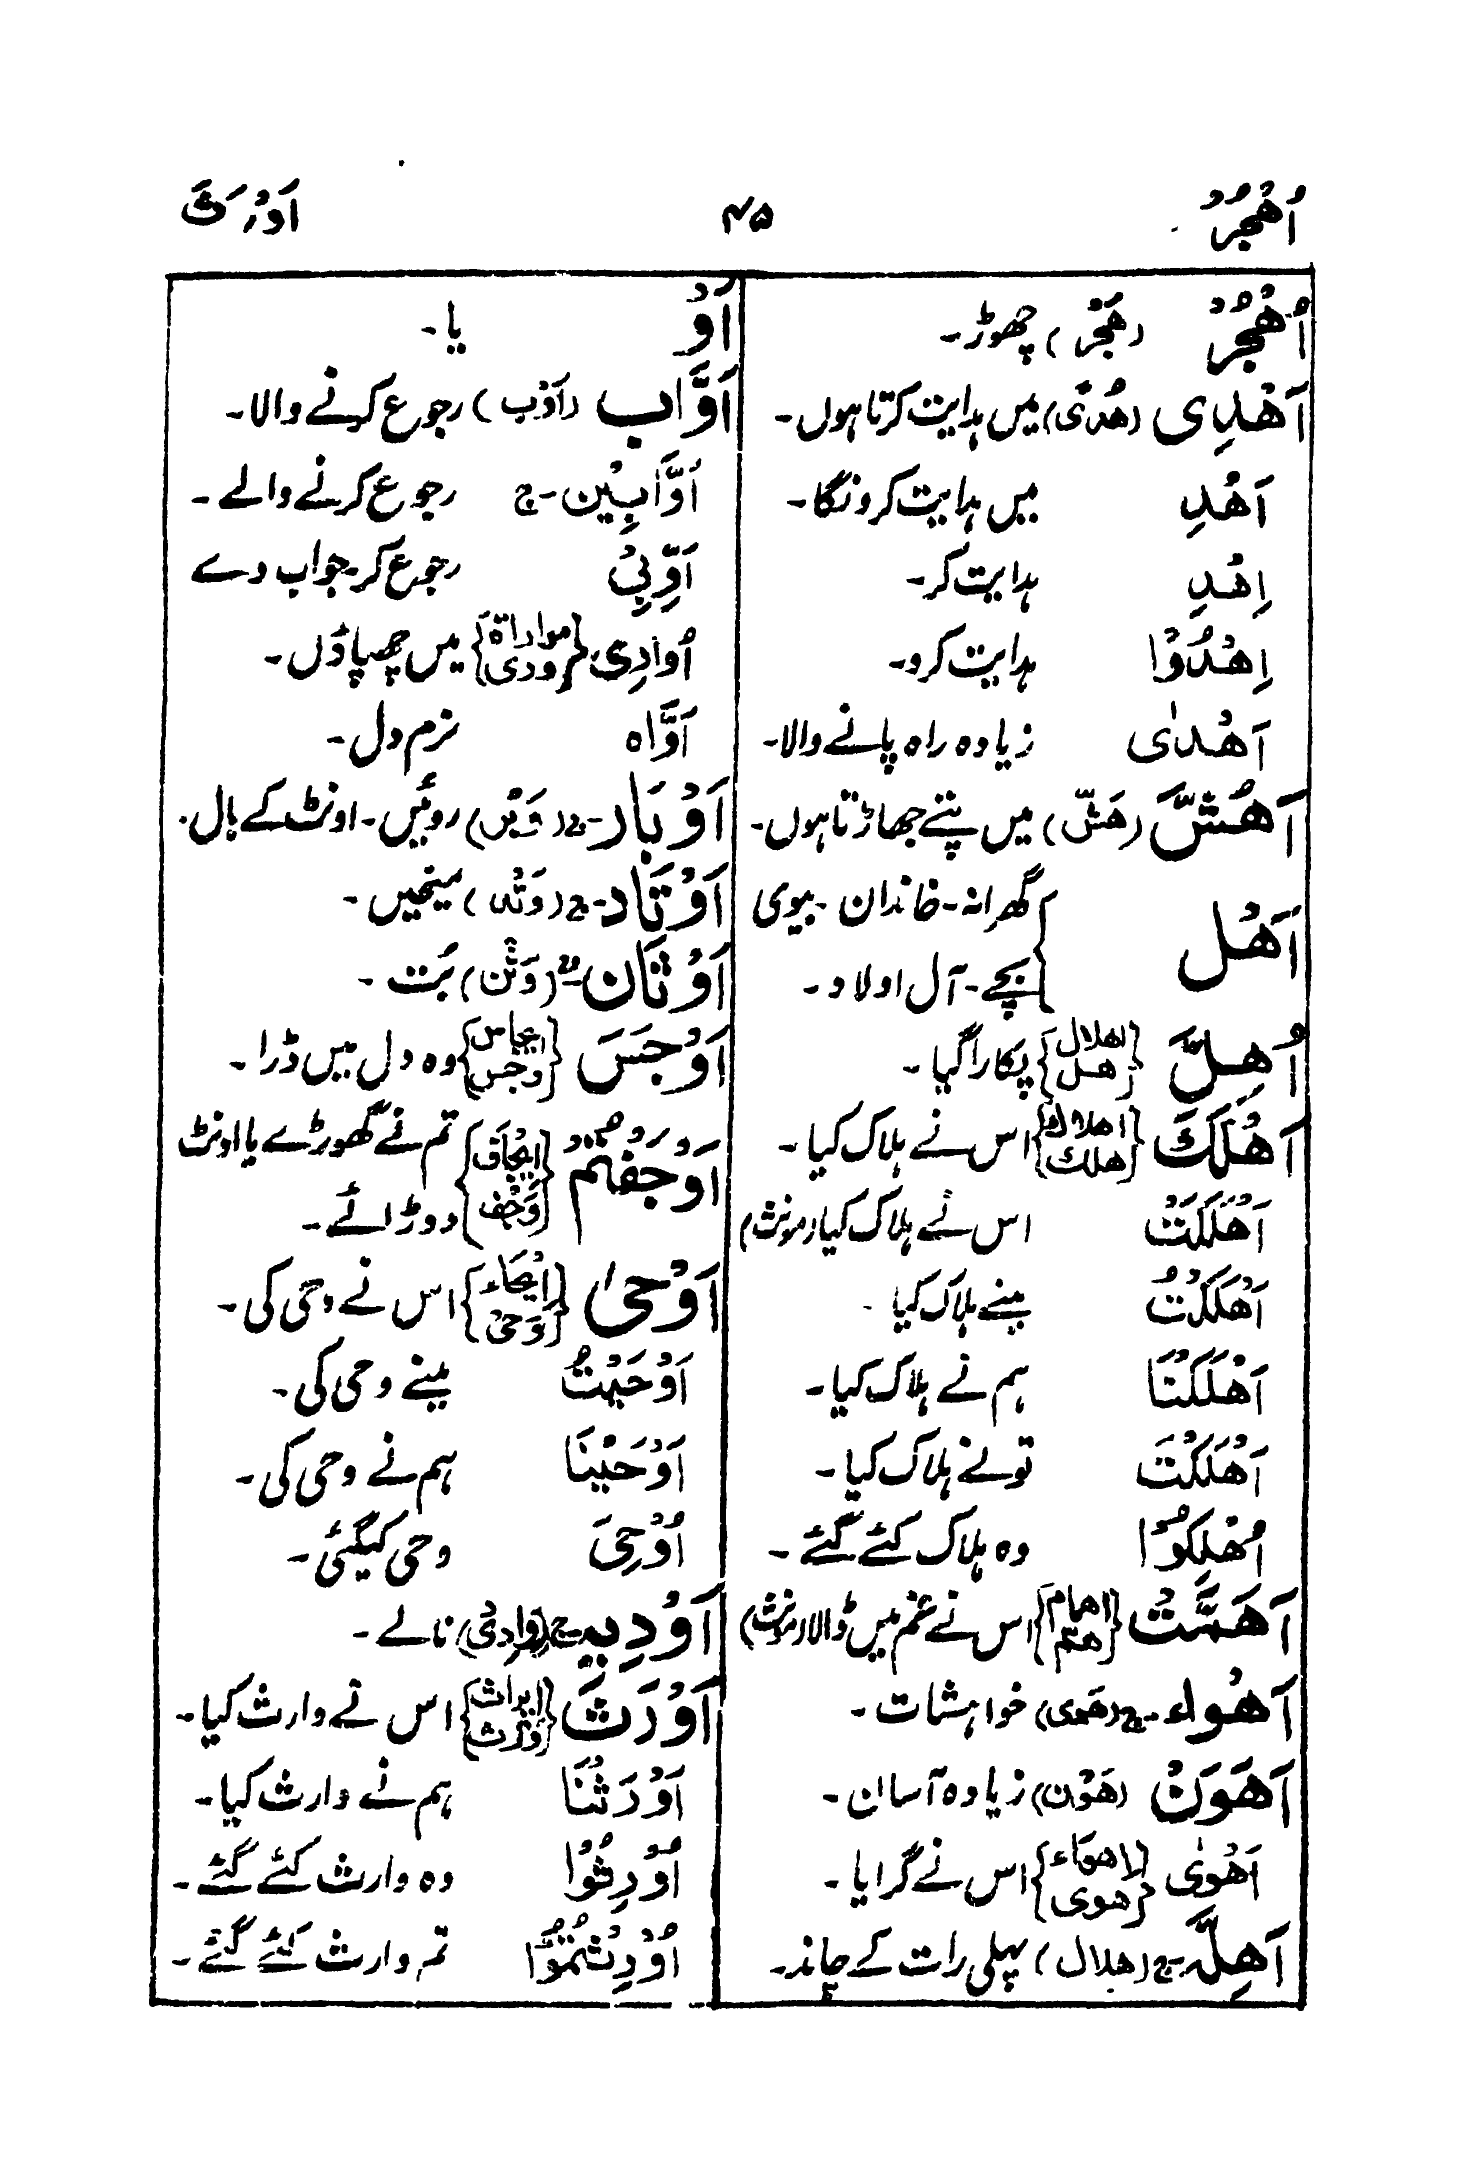 اُهْجُرْ ۴۵ اَوْرَثَ
اُهْجُرْ (هَجْر) چھوڑ۔
اَهْدِی (هُدًی) میں ہدایت کرتا ہوں۔
اَهْدِ میں ہدایت کرونگا۔
اِهْدِ ہدایت کر۔
اِهْدُوْا ہدایت کرو۔
اَهْدٰی زیادہ راہ پانے والا۔
اَهُشَّ (هَشّ) میں پتے جھاڑتا ہوں۔
اَهْل {گھرانہ۔ خاندان۔ بیوی
بچے۔ آل اولاد۔
اُهِلَّ {اهلال هلّ} پکارا گیا۔
اَهْلَكَ {اهلاك هلك} اس نے ہلاک کیا۔
اَهْلَكَتْ اس نے ہلاک کیا (مونث)
اَهْلَكْتُ مینے ہلاک کیا
اَهْلَكْنَا ہم نے ہلاک کیا۔
اَهْلَكْتَ تونے ہلاک کیا۔
اُهْلِكُوْا وہ ہلاک کئے گئے۔
اَهَمَّتْ {اهمام همّ} اس نے غم میں ڈالا (مونث)
اَهْواء۔ج (هَوی) خواہشات۔
اَهْوَنْ (هَوْن) زیادہ آسان۔
اَهْوٰی {اهواء هوی} اس نے گرایا۔
اَهِلَّه۔ج (هلال) پہلی رات کے چاند۔
اَوْ یا۔
اَوَّاب (اَوْب) رجوع کرنے والا۔
اَوَّابِیْن۔ج رجوع کرنے والے۔
اَوِّبِیْ رجوع کر۔ جواب دے
اُوَادِی {مواداة ودی} میں چھپاؤں۔
اَوَّاه نرم دل۔
اَوْبَار۔ج (وَبْر) روئیں۔ اونٹ کے بال۔
اَوْتَاد۔ج (وَتْد) میخیں۔
اَوْثَان۔ج (وَثْن) بُت۔
اَوْجَسَ {ایجاس وجس} وہ دل میں ڈرا۔
اَوْجَفْتُمْ {ایجاف وَجْف} تم نے گھوڑے یا اونٹ
دوڑائے۔
اَوْحیٰ {ایحاء وَحْی} اس نے وحی کی۔
اَوْحَیْتُ مینے وحی کی۔
اَوْحَیْنَا ہم نے وحی کی۔
اُوْحِیَ وحی کیگئی۔
اَوْدِیه۔ج (وادی) نالے۔
اَوْرَثَ {ایراث ورث} اس نے وارث کیا۔
اَوْرَثْنَا ہم نے وارث کیا۔
اُوْرِثُوْا وہ وارث کئے گئے۔
اُوْرِثْتُمُوْا تم وارث کئے گئے۔